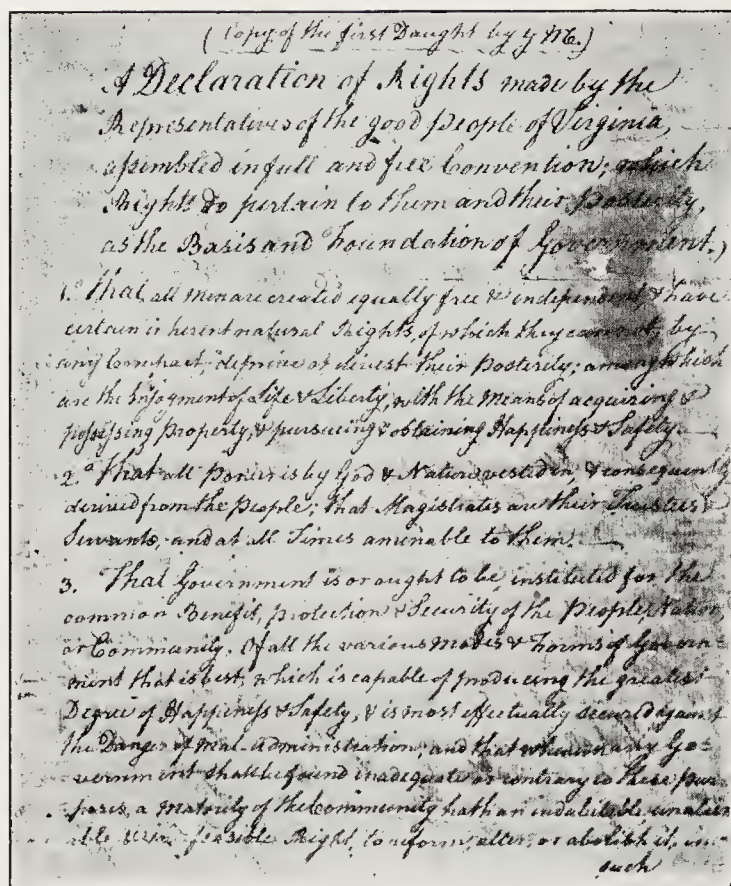 (Copy of the first Daught by
A Declaration of Rights made by the
Representatives of the good people of Virginia,
assembled in full and free Convention; which
Rights do pertain to them and their Posterity,
as the Basis and Foundation of Government.)
1. That all men are created equally free & independent, & have
certain inherent natural Rights, of which they cannot, by
any Compact, deprive or divest their Posterity; among which
are the Enjoyment of Life & Liberty, with the Means of acquiring &
possessing Property, & pursueing & obtaining Happiness & Safety.
2.d That all Power is by God & Nature vested in, & consequently
derived from the People; that Magistrates are their Trustees &
Servants, and at all Times amenable to them.
3. That Government is or ought to be, instituted for the
common Benefit, protection & Security of the People, Nation,
or Community. Of all the various modes & Forms of Govern-
ment that is best, which is capable of producing the greatest
Degree of Happiness & Safety, & is most effectually secured against
the Danger of mal-administration; and that whenever any Go-
vernment shall be found inadequate or contrary to these pur-
poses, a Majority of the Community hath an indubitable unalien
able feasible Right, to reform, alter, or abolish it, in
such